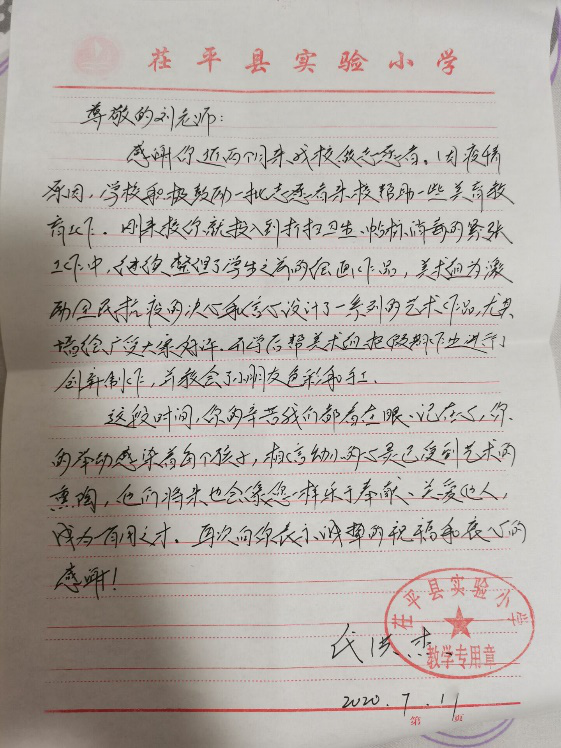 茌平县实验小学
尊敬的刘老师:
感谢你近两个月来我校做志愿者。因疫情
原因,学校积极鼓励一批志愿者来校帮助一些美育教
育工作。刚来校你就投入到打扫卫生、帖标消毒的紧张
工作中,继续整理了学生之前的绘画作品,美术组为激
励全民抗疫的决心和信心设计了一系列的艺术作品,尤其
墙绘广受大家称许。开学后帮美术组把假期作业进行了
创新制作,并教会了小朋友色彩和手工。
这段时间,你的辛苦我们都看在眼、记在心,你
的举动感染着每个孩子,相信幼小的心灵已受到艺术的
熏陶,他们将来也会像您一样乐于奉献、关爱他人,
成为有用之才。再次向你表示诚挚的祝福和衷心的
感谢!
茌平县实验小学
教学专用章
代洪杰
2020.7.11
第 页